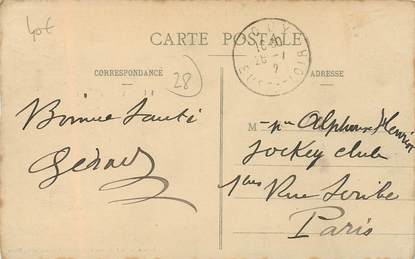 40€
CARTE POSTALE
CORRESPONDANCE
28
ADRESSE
Bonne Santé
M
Alphonse Henriot
Jockey Club
1 bis Rue Scribe
Paris